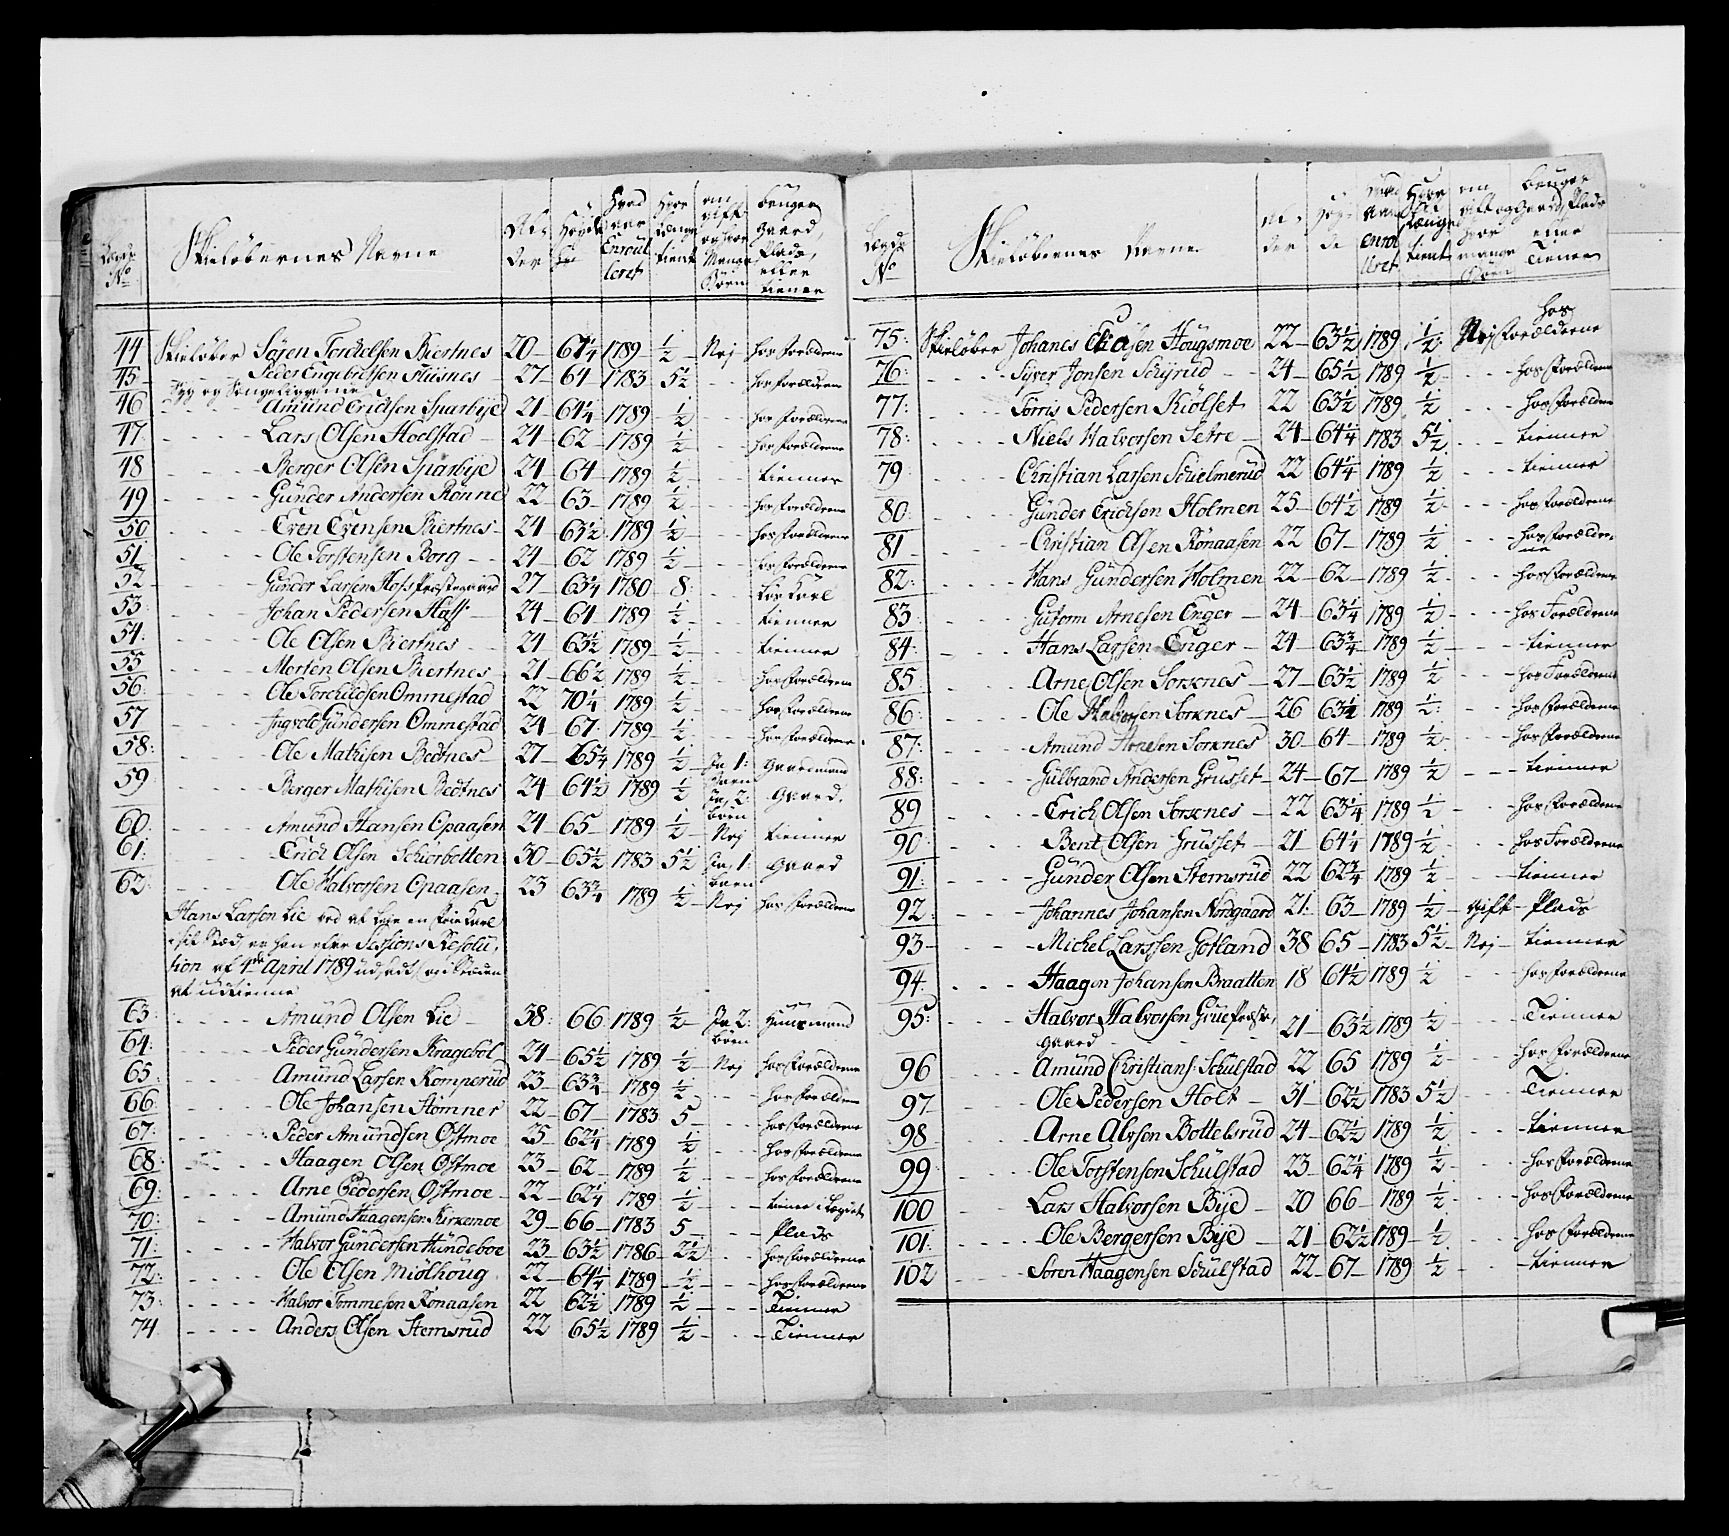 No Skieløbernes Navne Al- der Høyde Hvad aar Enroul- leret Hvor længe tient om gift og hvor Mange Børn bruger Gaard, Plads, eller tiener
44 Skieløber Sojen Torchelsen Kiertnes 20 61 1/4 1789 1/2 Nej hos forældrene
45 Peder Engebretsen Kiisnes 27 64 1783 5 1/2 hos forældrene
Syg og Sengeliggende
46 Amund Erichsen Sparbye 21 64 1/4 1789 1/2 hos forældrene
47: Lars Olsen Hoelstad 24 62 1789 1/2 hos forældrene
48 Berger Olsen Sparbye 24 64 1789 1/2 tienner
49 Günder Andersen Rønne 22 63 1789 1/2 hos forældrene
50 Even Evensen Kiertnes 24 63 1/2 1789 1/2 hos forældrene
51 Ole Torstensen Borg 24 62 1789 1/2 hos forældrene
52 Gunder Larsen Hofs Præstegaard 27 63 1/4 1780 8:
53: Johan Pedersen Hoff 24 64 1789 1/2 tienner
54: Ole Olsen Kiertnes 24 63 1/2 1789 1/2 tienner
55 Morten Olsen Kiertnes 21 66 1/2 1789 1/2 hos forældrene
56: Ole Torchildsen Ommestad 22 70 1/4 1789 1/2 hos forældrene
57 Ingvold Gündersen Ommestad 24 67 1789 1/2 hos forældrene
58: Ole Mathisen Bedtnes 27 65 1/4 1789 1/2 Ja 1: barn Gaardmand
59 Berger Mathisen Bedtnes 24 64 1/2 1789 1/2 Ja 2: børn Gaard.
60: Amünd Hansen Opaasen 24 65 1789 1/2 Nej tienner
61: Erich Olsen Schierbotten 30 65 1/2 1783 5 1/2 Ja 1: barn Gaard
62: Ole Halvorsen Opaasen 23 63 3/4 1789 1/2 Nej hos forældrene
Hans Larsen Lie ved at leye en frie Karl
i sit Stæd, er han efter Sessions Resolu,
tion af 4de April 1789 udsadt, og i Steden
at udtienne
63: Amünd Olsen Lie 38: 66 1789 1/2 Ja 2: børn Huusmand
64: Peder Gündersen Kragebøl 24 65 1/2 1789 1/2 Nej hos forældrene
65: Amünd Larsen Komperüd 23 63 3/4 1789 1/2 hos forældrene
66: Ole Johansen Stømner 22 67 1783 5 hos forældrene
67: Peder Amündsen Østmoe 25 62 1/4 1789 1/2 hos forældrene
68: Haagen Olsen Østmoe 23 62 1789 1/2 hos forældrene
69: Arne Pedersen Østmoe 22 62 1/4 1789 1/2 tiener i
70: Amünd Haagensen Kirkemoe 29 66 1783 5 Plads
71: Halvor Gündersen Hündeboe 23 63 1/2 1786 2 1/2 hos forældrene
72: Ole Olsen Miølhoug 22 64 1/4 1789 1/2 hos forældrene
73: Halvor Tommesen Rønaasen 22 62 1/2 1789 1/2 Tienner
74 Anders Olsen Stemsrüd 22 65 1/2 1789 1/2 Tienner
No Skieløbernes Navne Al- der Høy- de Hvad Aar enrol- leret Hvor længe tient om gift og hvor mange Børn bruger Gaard, Plads eller Tiener
75: Skieløber Johanes Hougsmoe 22 63 1/2 1789 1/2 Nej hos forældrene
76: Syver Jonsen Schyrud 24 65 1/2 1789 1/2 hos forældrene
77: Torris Pedersen Kiølset 22 63 1/2 1789 1/2 hos forældrene
78: Niels Halvorsen Setre 24 64 1/4 1783 5 1/2 tienner
79: Christian Larsen Schielmerüd 22 64 1/4 1789 1/2 tienner
80: Günder Erichsen Holmen 25 64 1/2 1789 1/2 hos forældrene
81 Christian Olsen Rønaasen 22 67 1789 1/2 hos forældre- ne
82: Hans Gündersen Holmen 22 62 1789 1/2 hos forældrene
83: Gutorm Arnesen Enger 24 63 1/4 1789 1/2 hos Forældrene
84: Hans Larsen Enger 24 63 3/4 1789 1/2 tienner
85 Arne Olsen Sorknes 27 63 1/2 1789 1/2 hos Forældrene
86: Ole Halvorsen Sorknes 26 63 1/4 1789 1/2 hos forældrene
87: Amünd Arnesen Sorknes 30 64 1789 1/2 hos forældrene
88: Gülbrand Andersen Grüsset 24 67 1789 1/2 tienner
89 Erich Olsen Sorknes 22 63 1/4 1789 1/2 hos forældrene
90: Bent Olsen Grüsset 21 64 1/4 1789 1/2 hos Forældrene
91: Günder Olsen Stemsrüd 22 62 3/4 1789 1/2 tienner
92: Johannes Johansen Nordgaard 21: 63 1789 1/2 gift Plads
93 Michel Larssen Gotland 38 65 1783 5 1/2 Nej tienner
94: Haagen Johansen Braatten 18 64 1/2 1789 1/2 hos forældrene
95: Halvor Halvorsen Grüe Præste,
gaard 21 63 1/2 1789 1/2 Tienner
96 Amünd Christians: Schülstad 22 65 1789 1/2 hos forældrene
97 Ole Pedersen Holt 31 62 1/2 1783 5 1/2 Tienner
98 Arne Alvson Bottelsrüd 24 62 1/2 1789 1/2 tienner
99 Ole Torstenson Schülstad 23 62 1/4 1789 1/2 hos forældrene
100 Lars Halvorsen Bye 20 66 1789 1/2 hos forældrene
101: Ole Bergerson Bye 21 62 1/2 1789 1/2 hos forældrene
102 Søren Haagensen Schülstad 22 67 1789 1/2 tienner